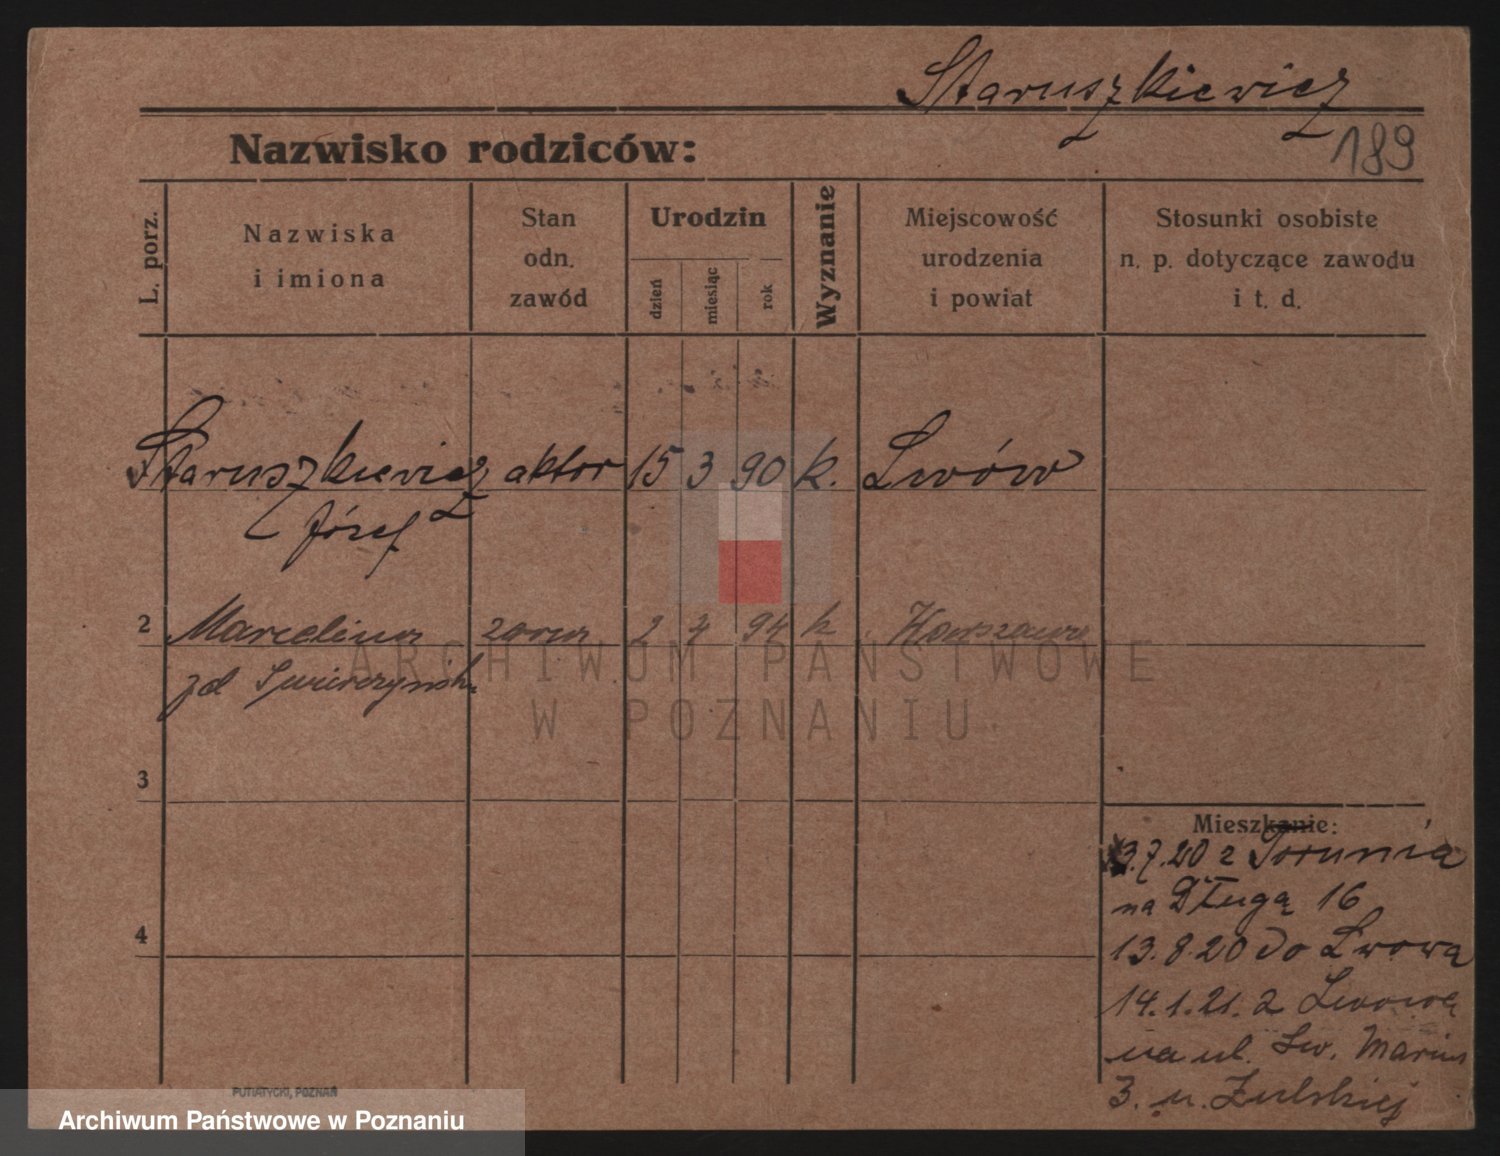 Staruszkiewicz
Nazwisko rodziców:
189
L. porz.
Nazwiska
i imiona
Stan
odn.
zawód
Urodzin
dzień
miesiąc
rok
Wyznanie
Miejscowość
urodzenia
i powiat
Stosunki osobiste
n. p. dotyczące zawodu
i t. d.
Staruszkiewicz aktor 15 3 90 k. Lwów
Józef
2 Marcelina żona 2 4 94 k Warszawa
zd Świerczyńsk
3
4
Mieszkanie:
13.7.20 z Torunia
na Długą 16
13.8.20 do Lwowa
14.1.21. z Lwowa
na ul. Św. Marcin
3. u. Zulskiej
PUTIATYCKI, POZNAŃ
ARCHIWUM PAŃSTWOWE
W POZNANIU
Archiwum Państwowe w Poznaniu